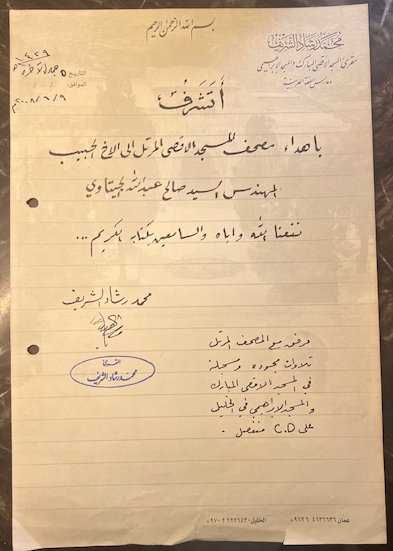 بسم الله الرحمن الرحيم
محمد رشاد الشريف
مقرئ المسجد الأقصى المبارك والمسجد الإبراهيمي
ومدرس اللغة العربية
التاريخ ٥ جمادى الآخرة ١٤٢٩هـ
الموافق: ٢٠٠٨/٦/٩م
أتشرف
بإهداء مصحف المسجد الاقصى المرتل الى الاخ الحبيب
المهندس السيد صالح عبدالله الجيتاوي
نفعنا الله واياه والسامعين بكتابه الكريم ...
محمد رشاد الشريف
محمد رشاد الشريف
مرفق مع المصحف المرتل
تلاوات مجودة ومسجلة
في المسجد الاقصى المبارك
والمسجد الابراهيمي في الخليل
على C.D منفصل .
عمّان ٤٦٣٦٦٣٦ ٠٩٦٢٦
الخليل ٢٢٢٦٤٣٠ ٠٩٧٠